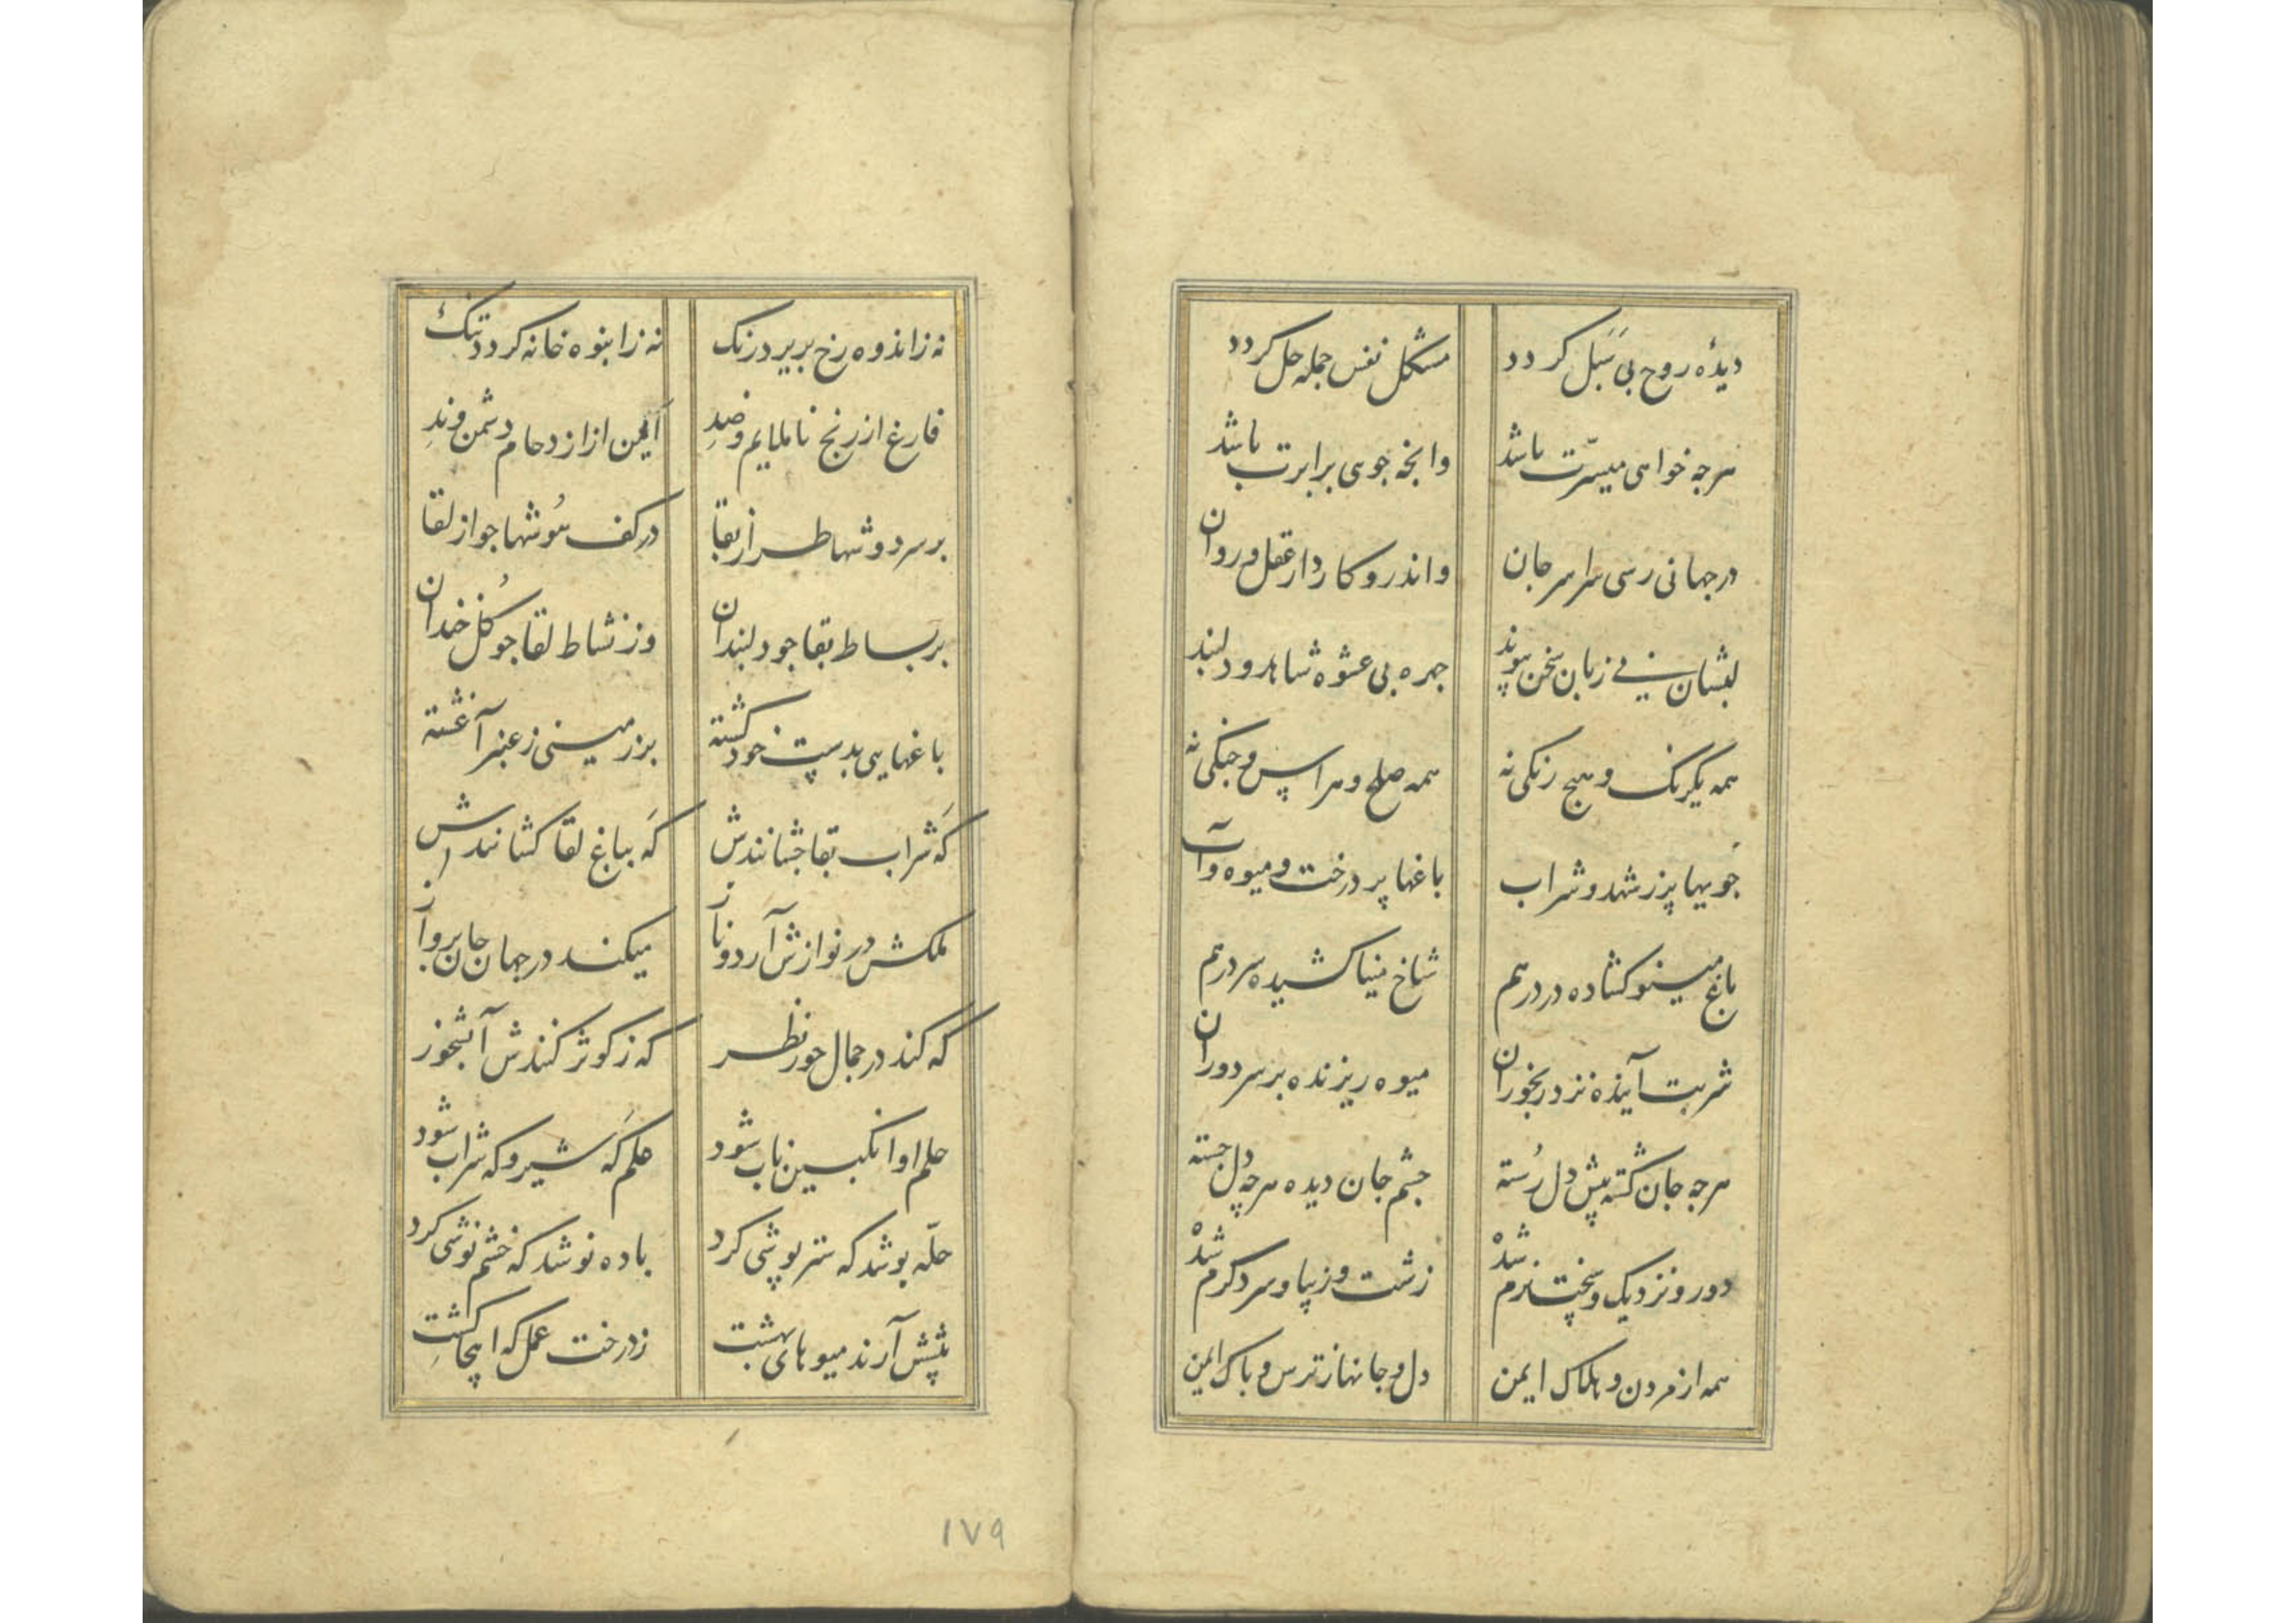 دیدهٔ روح بی سَبَل کردد مشکل نفس جمله حل کردد
هرچه خواهی میسّرت باشد وانچه جویی برابرت باشد
در جهانی رسی سراسر جان واندرو کاردار عقل و روان
لبشان بی زبان سخن پیوند چهره بی عشوه شاهد و دلبند
همه یکرنک و هیچ رنکی نه همه صلح و هراس و جنکی نه
جویها پر ز شهد و شراب باغها پر درخت و میوه و آب
باغ مینو کشاده در در هم شاخ مینا کشیده سر در هم
شربت آینده نزد ربخوران میوه ریزنده بر سر دوران
هرچه جان کشته پیش دل رُسته چشم جان دیده هرچه دل جسته
دور و نزدیک و سخت نرم شده زشت و زیبا و سرد کرم شده
همه از مردن و هلاک ایمن دل و جانها ز ترس و باک ایمن
نه ز اندوه رخ برید رنک نه ز انبوه خانه کردد تنک
فارغ از رنج ناملایم و ضد ایمن از ازدحام دشمن و ند
بر سر دوشها طراز بقا در کف هوشها جواز لقا
بر بساط بقا جو دلبندان وز نشاط لقا جو کُل خندان
باغهایی بدست خود کشته بر زمینی ز عنبر آغشته
که شراب بقا چشانندش که بباغ لقا کشانندش
ملکش در نوازش آرد و ناز میکند در جهان جان پرواز
که کند در جمال حور نظر که ز کوثر کنندش آبشخور
حلم او انکبین ناب شود علم که شیر و که شراب شود
حلّه پوشد که ستر پوشی کرد باده نوشد که خشم نوشی کرد
پیشش آرند میوهای بهشت ز درخت عمل که اینجا کشت
۱۷۹